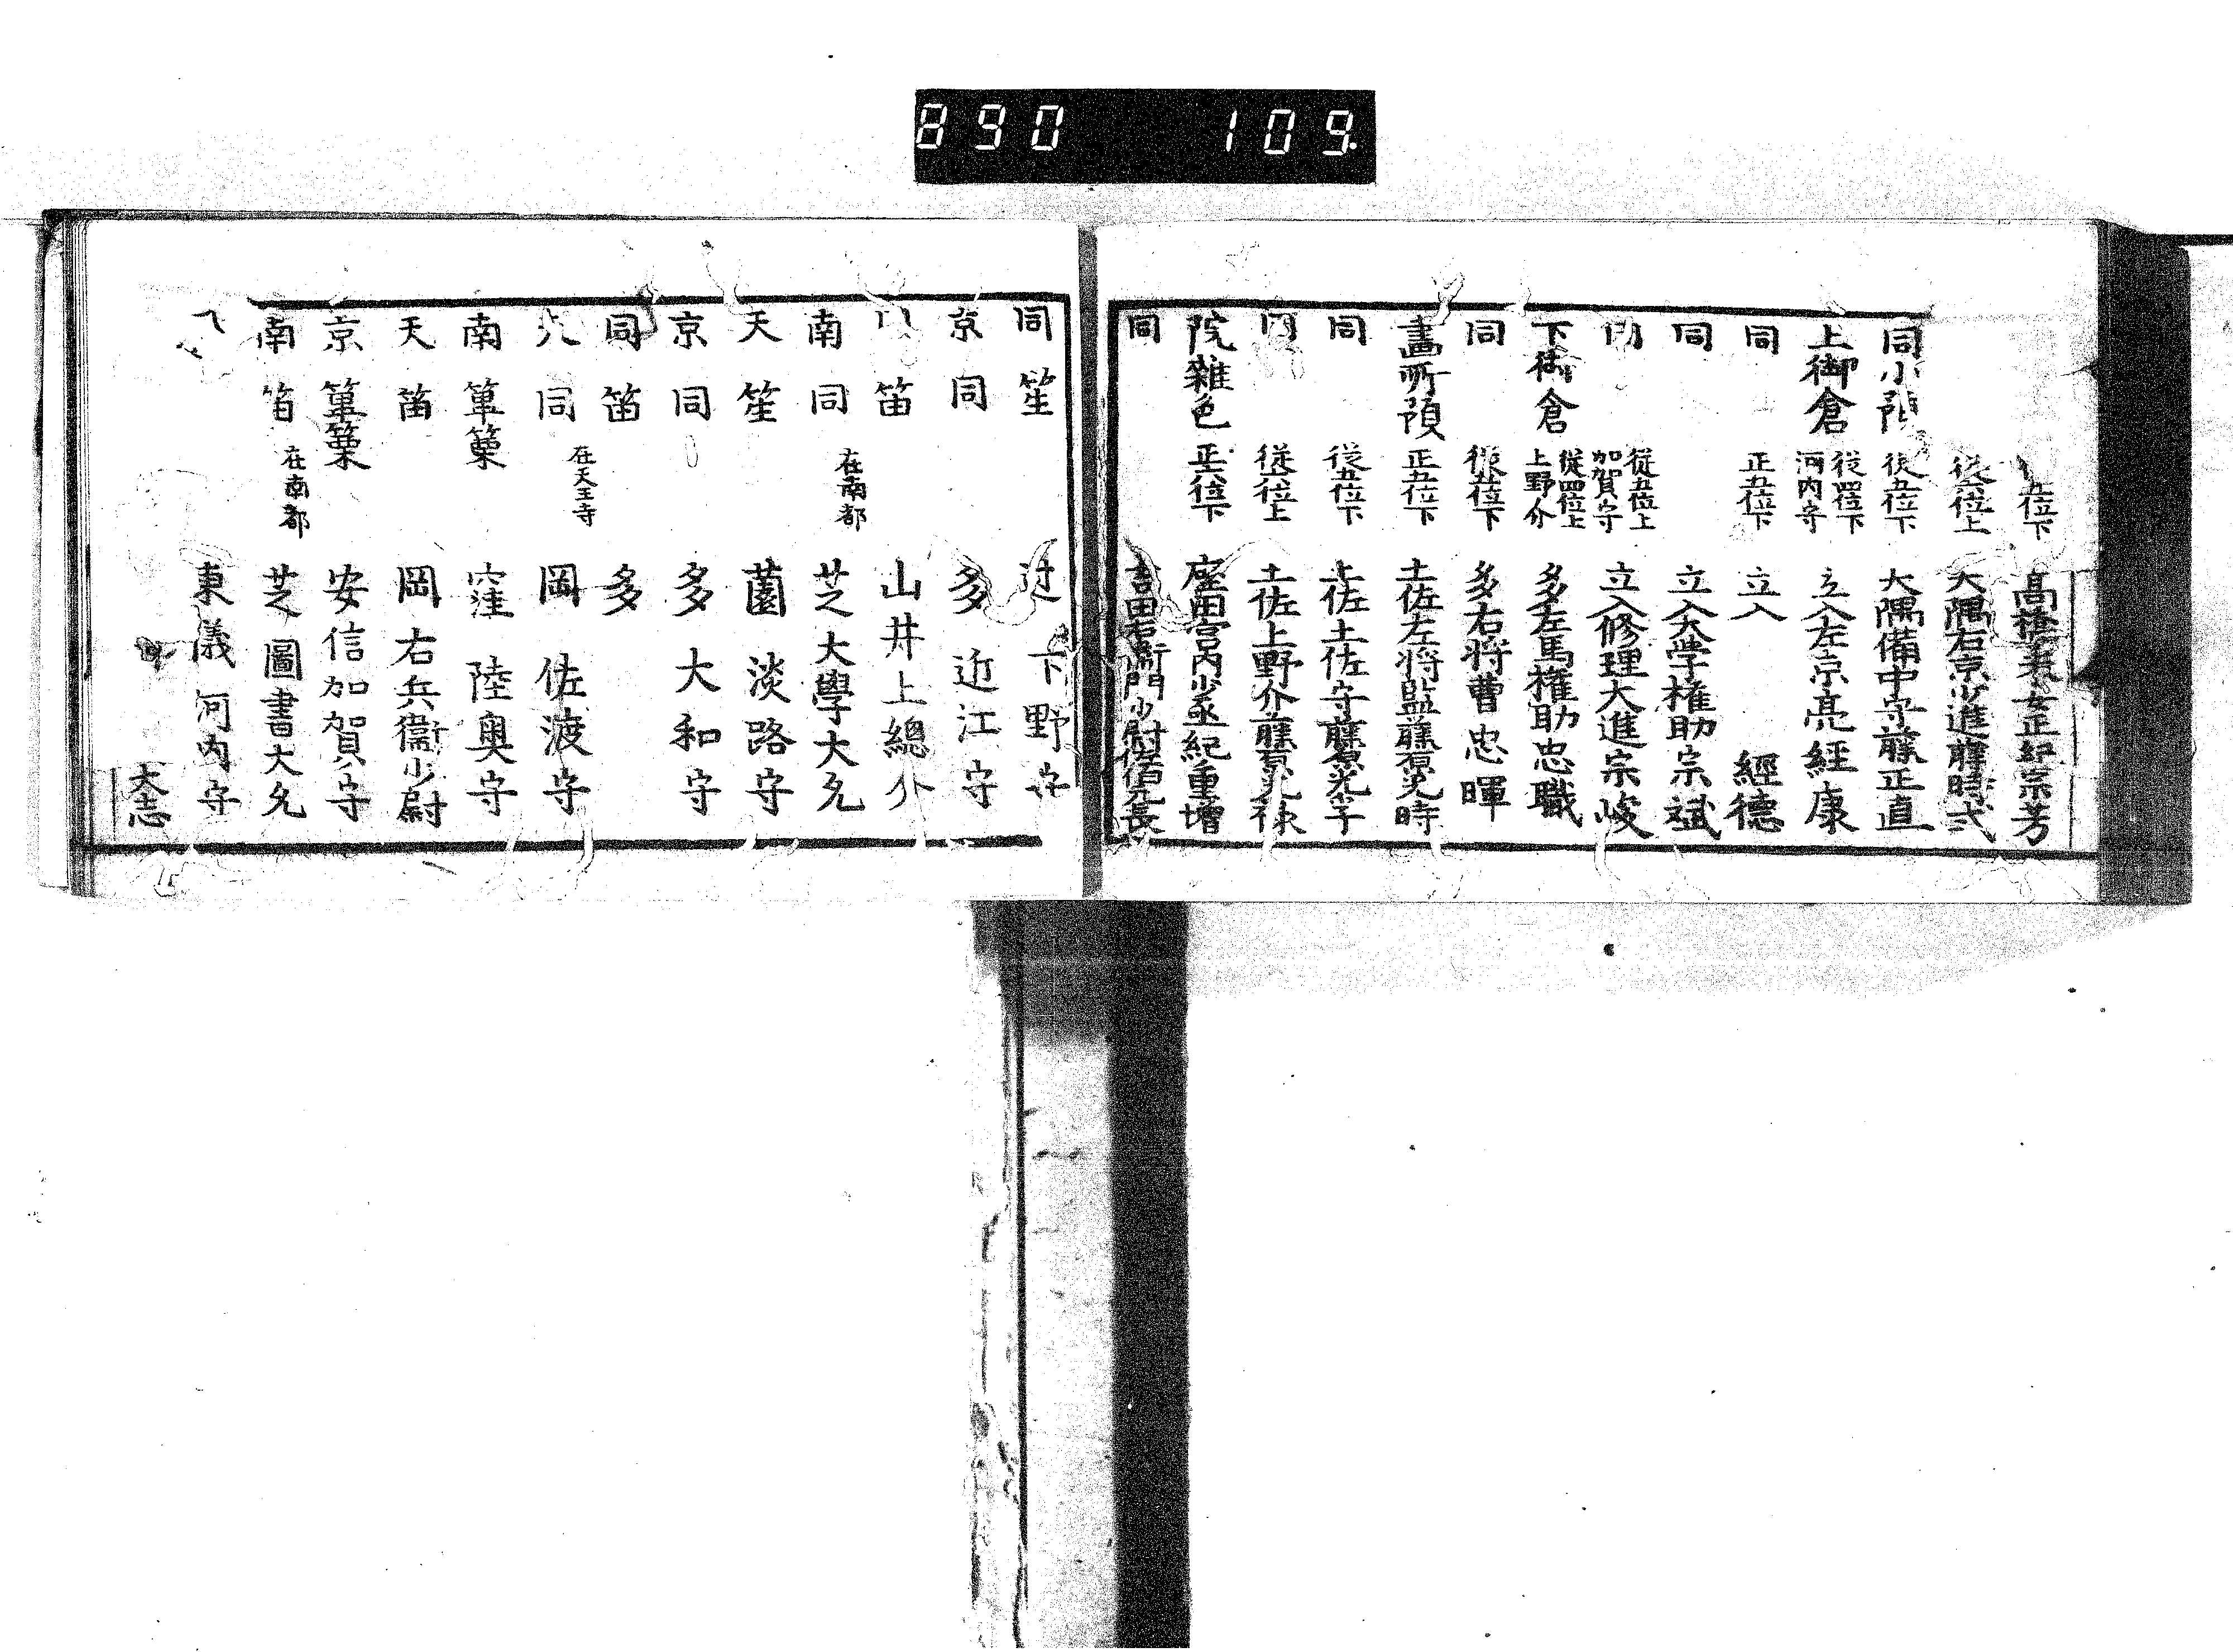 890 109
五位下 高橋采女正紀宗芳
従六位上 大隅右京少進藤時弐
同小預 従五位下 大隅備中守藤正直
上御倉 従四位下 河内守 立入左京亮經康
同 正五位下 立入 經德
同 立入大学権助宗斌
同 従五位上 加賀守 立入修理大進宗岐
下御倉 従四位上 上野介 多左馬権助忠職
同 従五位下 多右将曹忠暉
畫所預 正五位下 土佐左将監藤原光時
同 従五位下 土佐土佐守藤原光孚
同 従六位上 土佐上野介藤原光禄
院雜色 正六位下 座田宮内少丞紀重増
同 吉田右衛門少尉佐伯元長
同 笙 辻 下野守
京 同 多 近江守
笛 山井上總介
南 同 在南都 芝 大學大允
天 笙 薗 淡路守
京 同 多 大和守
同 笛 多
天 同 在天王寺 岡 佐渡守
南 篳篥 窪 陸奥守
天 笛 岡 右兵衞少尉
京 篳篥 安倍加賀守
南 笛 在南都 芝 圖書大允
東儀 河内守
大志